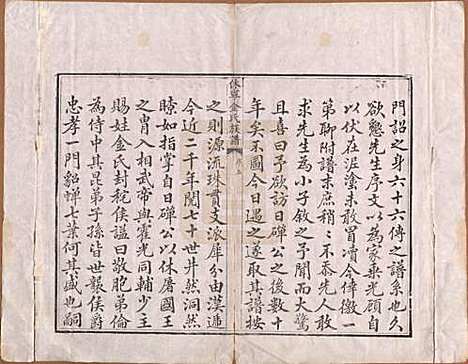 門詔之身六十六傳之譜系也久
欲懇先生序文以為家乘光顧自
以伏在泥塗未敢冒瀆今倖徼一
第聊附譜末庶稍稍不忝先人敢
求先生為小子敘之予聞而大驚
且喜曰予欲訪日磾公之後數十
年矣不圖今日遇之遂取其譜按
休寧金氏族譜
之則源流珠貫支派犀分由漢迄
今近二千年閱七十世井然洞然
瞭如指掌自日磾公以休屠國王
之胄入相武帝與霍光同輔少主
賜姓金氏封秺侯謚曰敬胞弟倫
為侍中其昆弟子孫皆世報侯爵
忠孝一門貂蟬七葉何其盛也嗣